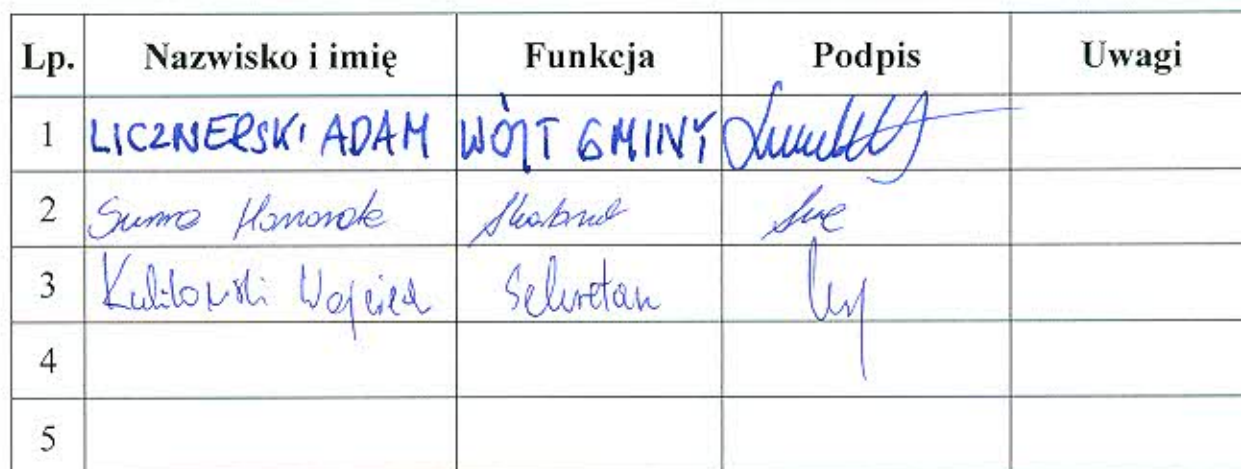 Lp. Nazwisko i imię Funkcja Podpis Uwagi
1 LICZNERSKI ADAM WÓJT GMINY
2 Suma Honorata Skarbnik
3 Kulikowski Wojciech Sekretarz
4
5